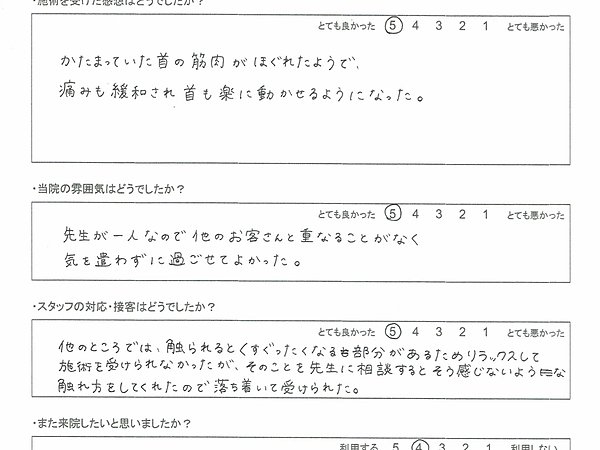 ・施術を受けた感想はどうでしたか？
とても良かった 5 4 3 2 1 とても悪かった
かたまっていた首の筋肉がほぐれたようで、
痛みも緩和され首も楽に動かせるようになった。
・当院の雰囲気はどうでしたか？
とても良かった 5 4 3 2 1 とても悪かった
先生が一人なので他のお客さんと重なることがなく
気を遣わずに過ごせてよかった。
・スタッフの対応・接客はどうでしたか？
とても良かった 5 4 3 2 1 とても悪かった
他のところでは、触られるとくすぐったくなる部分があるためリラックスして
施術を受けられなかったが、そのことを先生に相談するとそう感じないような
触れ方をしてくれたので落ち着いて受けられた。
・また来院したいと思いましたか？
利用する 5 4 3 2 1 利用しない